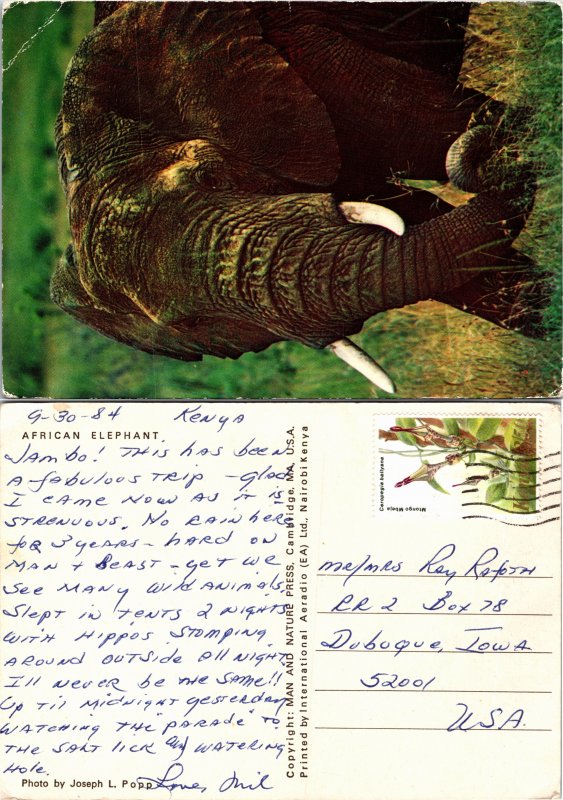 9-30-84 Kenya
AFRICAN ELEPHANT
Jambo! This has been
a fabulous trip - glad
I came now as it is
strenuous. No rain here
for 3 years - hard on
man + beast - yet we
see many wild animals.
Slept in tents 2 nights
with hippos stomping
around outside all night
I'll never be the same!!
Up til midnight yesterday
watching the "parade" to
the salt lick and watering
hole.
Photo by Joseph L. Popp
Love,
Copyright: MAN AND NATURE PRESS, Cambridge, MA, U.S.A.
Printed by International Aeradio (EA) Ltd., Nairobi Kenya
Ceropegia ballyana
Mtongo Mbeja
Mr/Mrs Ray Rafoth
RR 2 Box 78
Dubuque, Iowa
52001
USA.